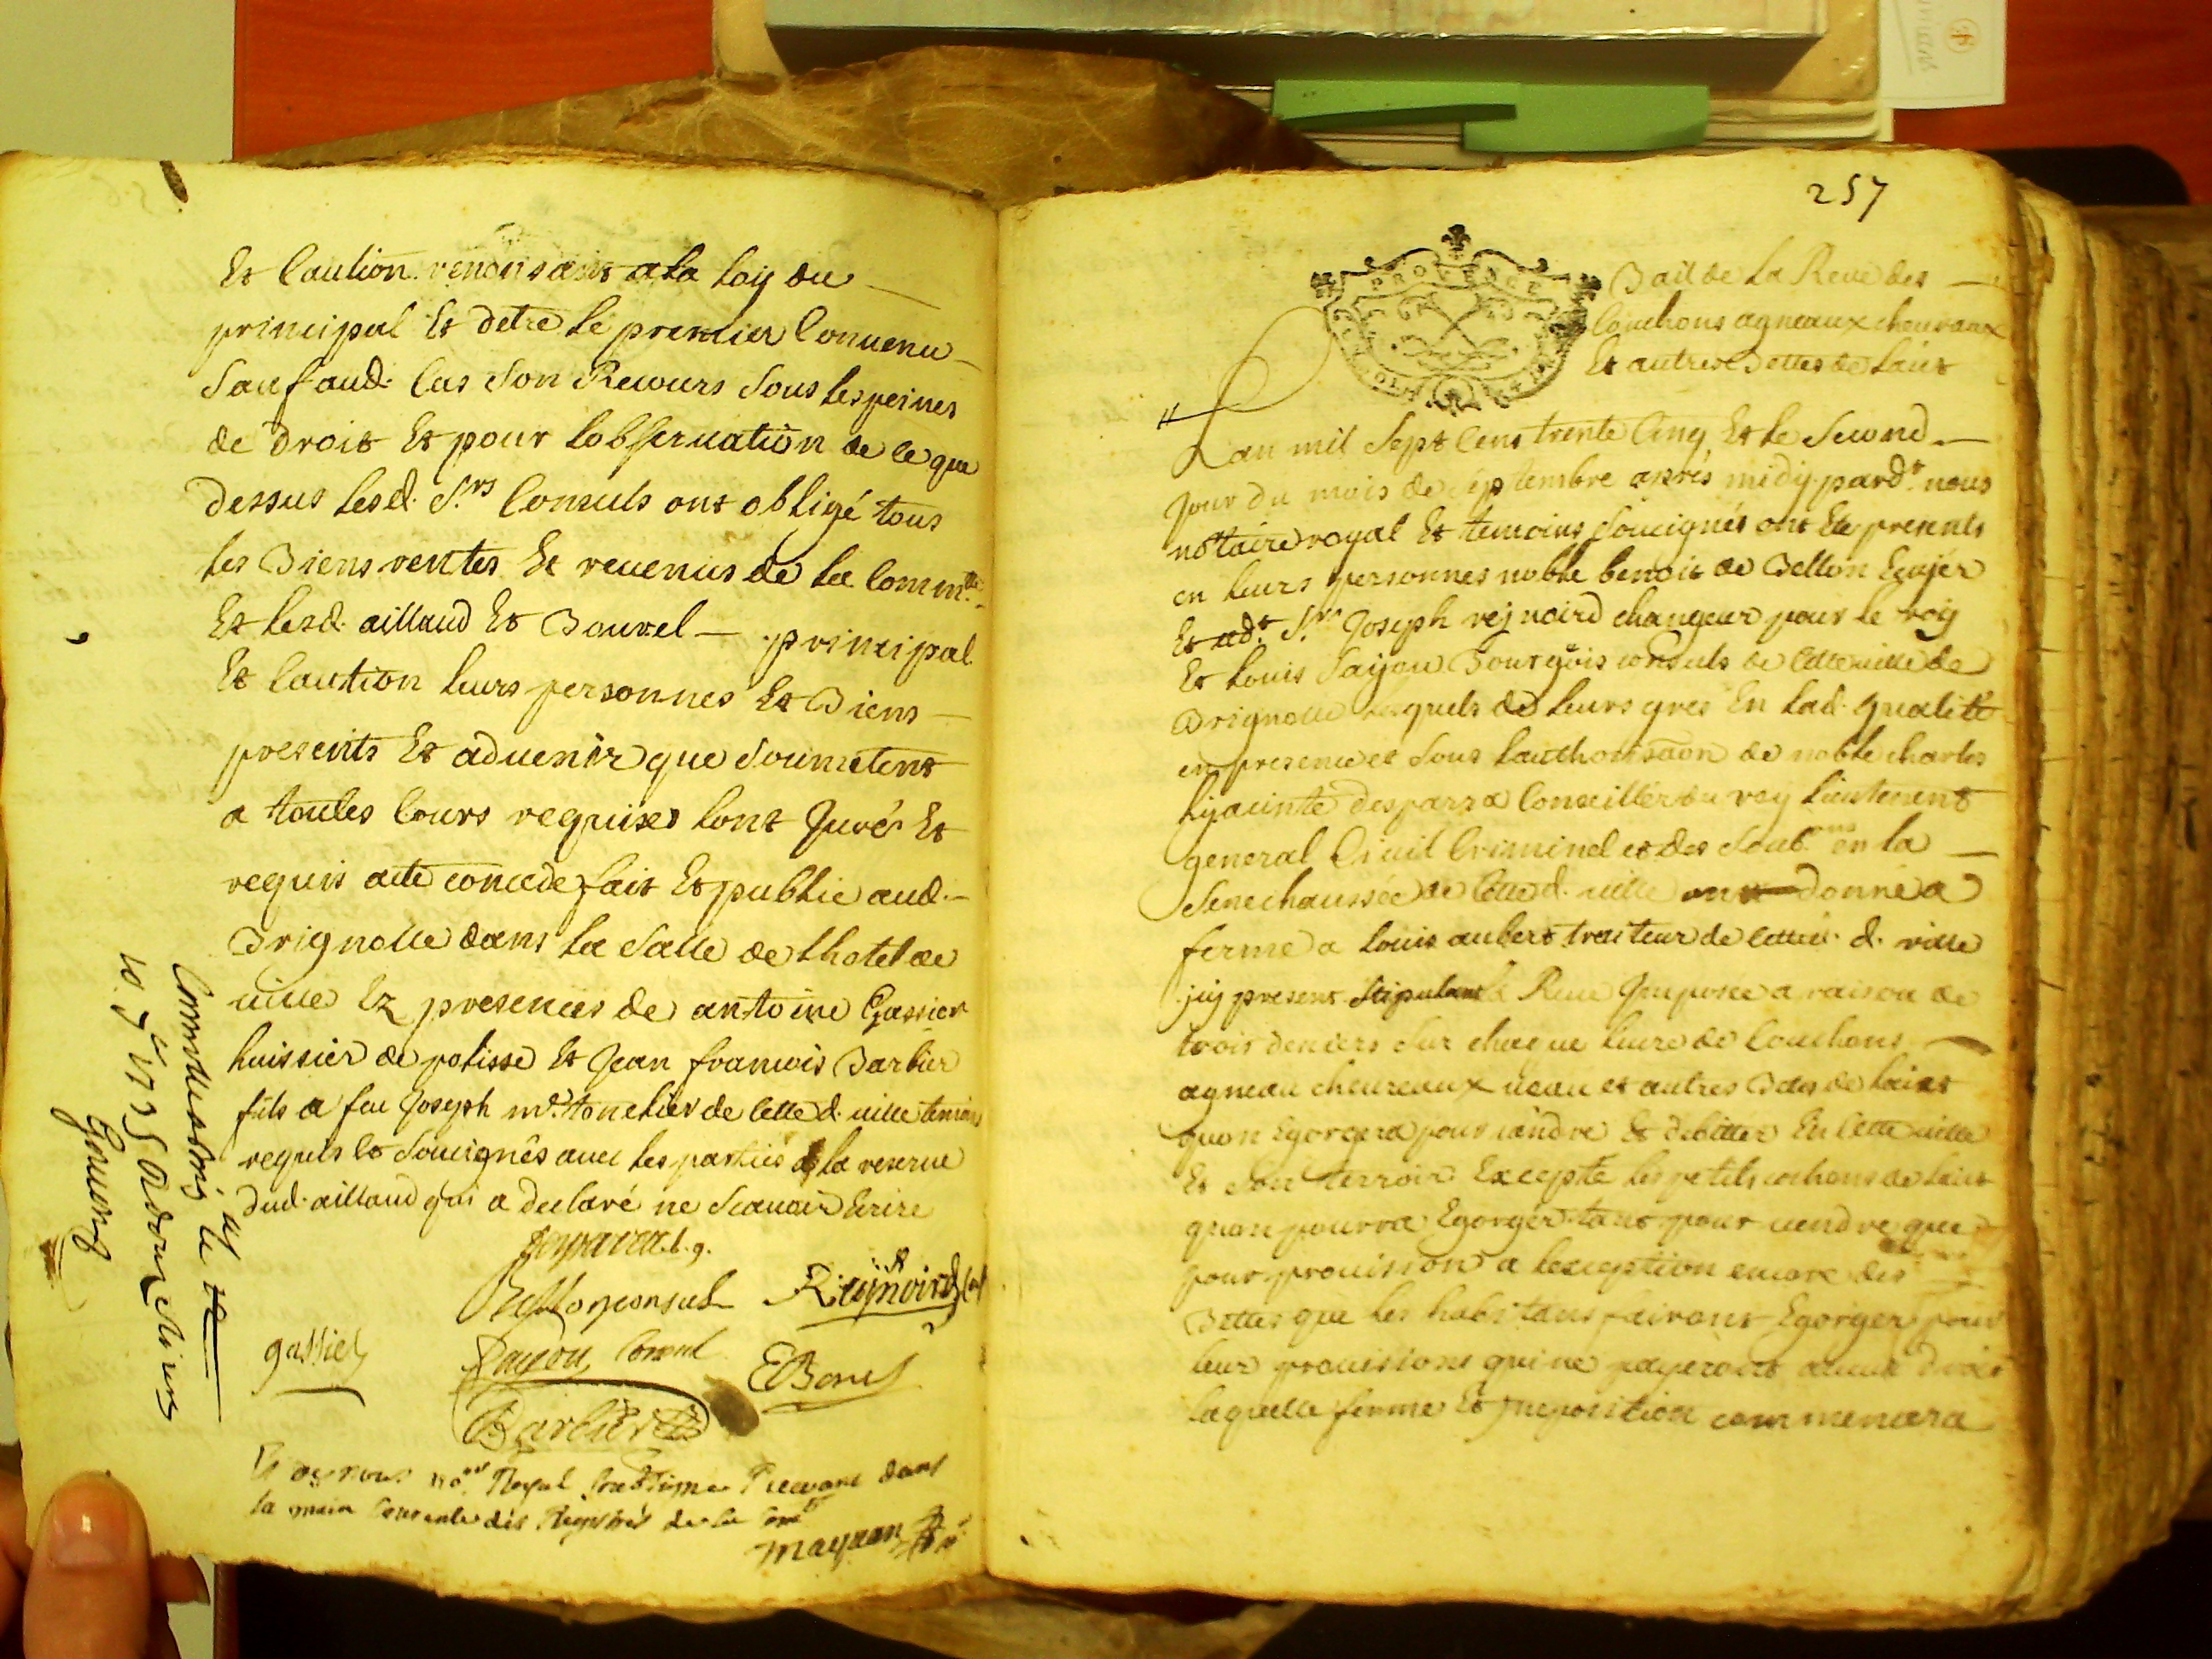 Et Caution renonsant a la loy du
principal Et detre le premier Convenu
Sauf aud. Cas Son Recours Sous les peines
de droit Et pour lobservation de ce que
dessus lesd. Srs Consuls ont obligé tous
les Biens rentes Et revenus de la Commté
Et lesd. aillaud Et Bourel principal
Et Caution leurs personnes Et Biens
presents Et advenir que Soumetent
a toutes Cours requises lont Juré Et
requis acte concede fait Et publié aud.
Brignolle dans la Salle de lhotel de
ville Ez presences de antoine Gassier
huissier de polisse Et Jean francois Barbier
fils a feu Joseph mr tonelier de Cette d. ville temoins
requis Et Souignés avec les parties a la reserve
dud. aillaud qui a declaré ne Scavoir Ecrire
desparra l. g.
Bellon consul Reynoird
gassier Saijou Consul
Barbier
Royal dans
la main Courante des Registres de la Comté
mayran
Controllé a Brignolle le
1735
257
Bail de La Reve des
Couchons agneaux chevraux
Et autres Bettes de Lait
Lan mil Sept Cens trente Cinq Et le Second
Jour du mois de septembre aprés midy pardt nous
notaire royal Et temoins Souignés ont Eté presents
en leurs personnes noble benoit de Bellon Ecujer
Et adt Sr Joseph rejnoird changeur pour le roij
Et Louis Saijou Bourgois consuls de Cette ville de
Brignolle lesquels de leurs gres En lad. qualité
en presence et Sous lauthorisaon de noble charles
hijacinte desparra Conseiller du roy Lieutenent
general Civil Criminel et des Soubons en la
Senechaussée de Cette d. ville ont donné a
ferme a Louis aubert traiteur de Cette d. ville
jcij present Stipulant la Reve Jmposée a raison de
trois deniers Sur chaque livre de Couchons
agneau chevreaux veau et autres Bettes de Lait
quon Egorgera pour vandre Et debiter En Cette ville
Et Son terroir Excepté les petits cochons de Lait
quon pourra Egorger tant pour vendre que
pour provision a lexception encore des
Bettes que les habitans fairont Egorger pour
leur provisions qui ne payeront aucun droit
laquelle ferme Et Jmposition commencera